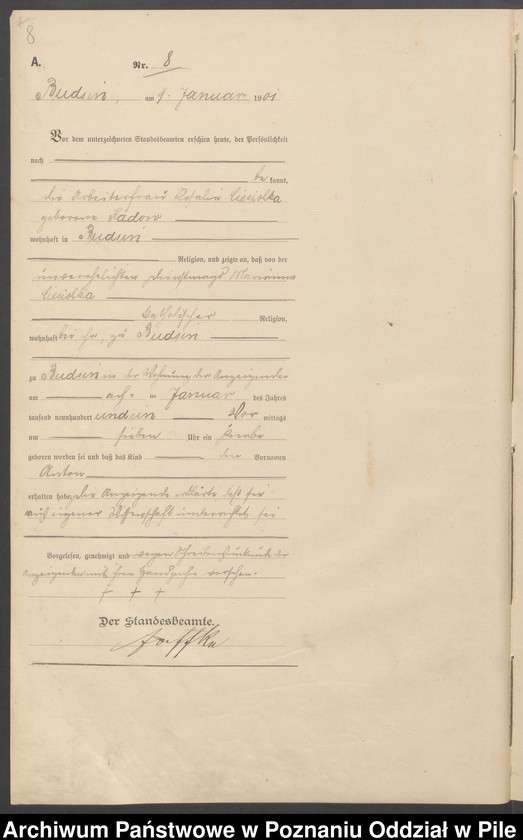 8
A.
Nr. 8
Budsin, am 9. Januar 1901
Vor dem unterzeichneten Standesbeamten erschien heute, der Persönlichkeit
nach
be kannt,
die Arbeiterfrau Rosalie Ciesiolka
geborene Radow
wohnhaft in Budsin
Religion, und zeigte an, daß von der
unverehelichten Dienstmagd Marianna
Ciesiolka
katholischer Religion,
wohnhaft bei ihr zu Budsin
zu Budsin in der Wohnung der Anzeigenden
am acht en Januar des Jahres
tausend neunhundert und ein Vor mittags
um sieben Uhr ein Knabe
geboren worden sei und daß das Kind den Vornamen
Anton
erhalten habe. Die Anzeigende erklärte daß sie
aus eigener Wissenschaft unterrichtet sei
Vorgelesen, genehmigt und wegen Schreibensunkunde der
Anzeigenden mit ihrem Handzeichen versehen.
+ + +
Der Standesbeamte.
Archiwum Państwowe w Poznaniu Oddział w Pile